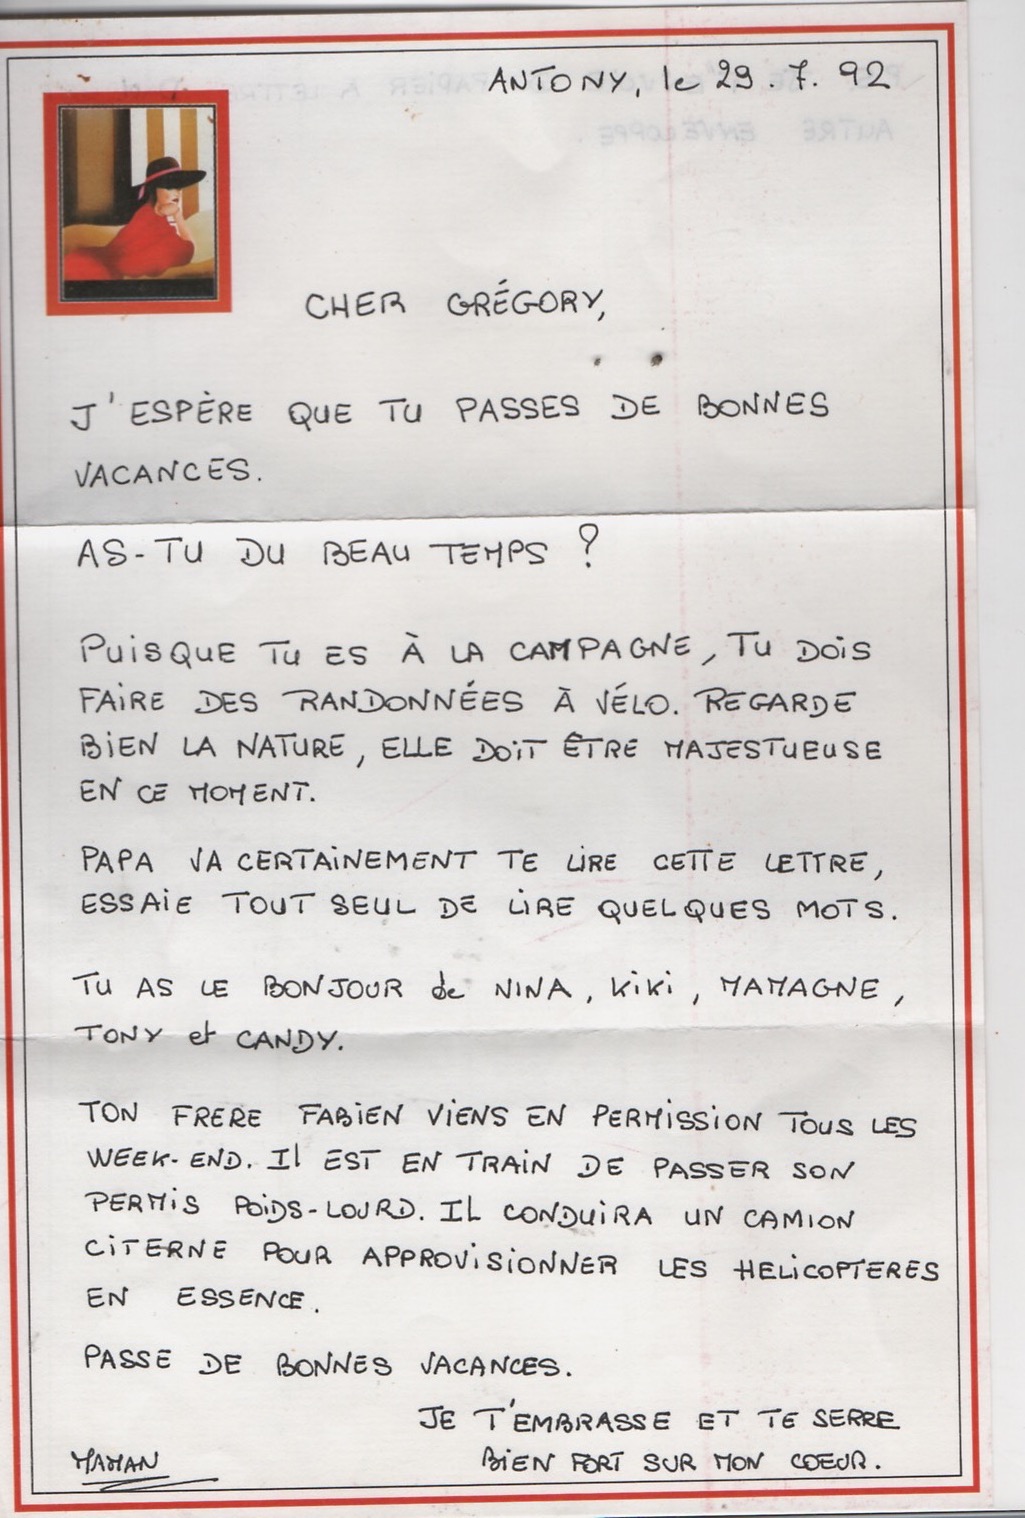 ANTONY, le 29.7.92
CHER GRÉGORY,
J'ESPÈRE QUE TU PASSES DE BONNES
VACANCES.
AS-TU DU BEAU TEMPS ?
PUiSQUE TU ES À LA CAMPAGNE, TU DOiS
FAiRE DES RANDONNÉES À VÉLO. REGARDE
BiEN LA NATURE, ELLE DOiT ÊTRE MAJESTUEUSE
EN CE MOMENT.
PAPA VA CERTAiNEMENT TE LiRE CETTE LETTRE,
ESSAiE TOUT SEUL DE LiRE QUELQUES MOTS.
TU AS LE BONJOUR de NINA, KiKi, MAMAGNE,
TONY et CANDY.
TON FRERE FABiEN ViENS EN PERMiSSION TOUS LES
WEEK-END. Il EST EN TRAiN DE PASSER SON
PERMiS POiDS-LOURD. IL CONDUiRA UN CAMION
CiTERNE POUR APPROViSiONNER LES HELiCOPTERES
EN ESSENCE.
PASSE DE BONNES VACANCES.
JE T'EMBRASSE ET TE SERRE
BiEN FORT SUR MON COEUR.
MAMAN
AUTRE ENVELOPPE.